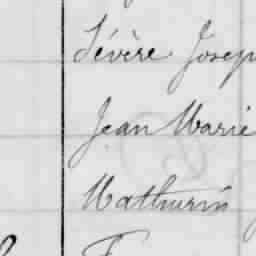 Sévère Josep
Jean Marie
Mathurin